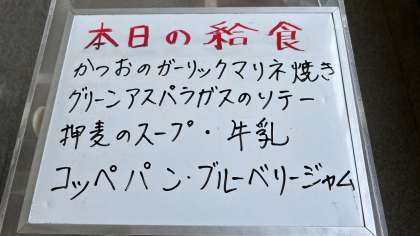 本日の給食
かつおのガーリックマリネ焼き
グリーンアスパラガスのソテー
押麦のスープ・牛乳
コッペパン・ブルーベリージャム